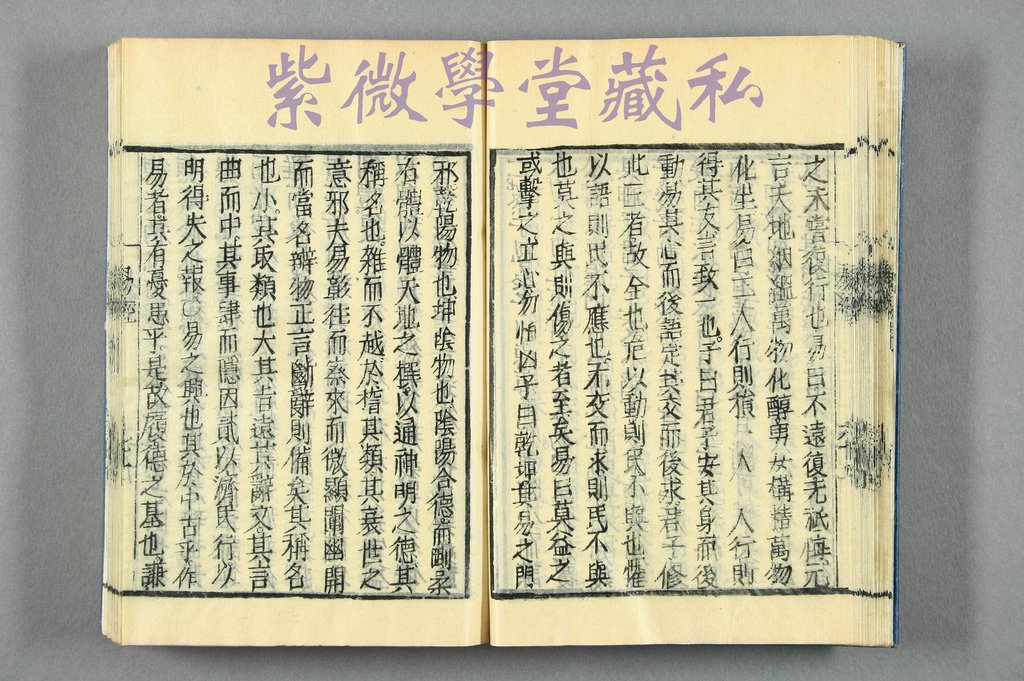 紫微學堂藏私
之未嘗復行也易曰不遠復无祇悔元
言天地絪縕萬物化醇男女構精萬物
化生易曰三人行則損一人一人行則
得其友言致一也子曰君子安其身而後
動易其心而後語定其交而後求君子修
此三者故全也危以動則民不與也懼
以語則民不應也无交而求則民不與
也莫之與則傷之者至矣易曰莫益之
或擊之立心勿恒凶子曰乾坤其易之門
邪乾陽物也坤陰物也陰陽合德而剛柔
有體以體天地之撰以通神明之德其
稱名也雜而不越於稽其類其衰世之
意邪夫易彰往而察來而微顯闡幽開
而當名辨物正言斷辭則備矣其稱名
也小其取類也大其旨遠其辭文其言
曲而中其事肆而隱因貳以濟民行以
明得失之報○易之興也其於中古乎作
易者其有憂患乎是故履德之基也謙
易經